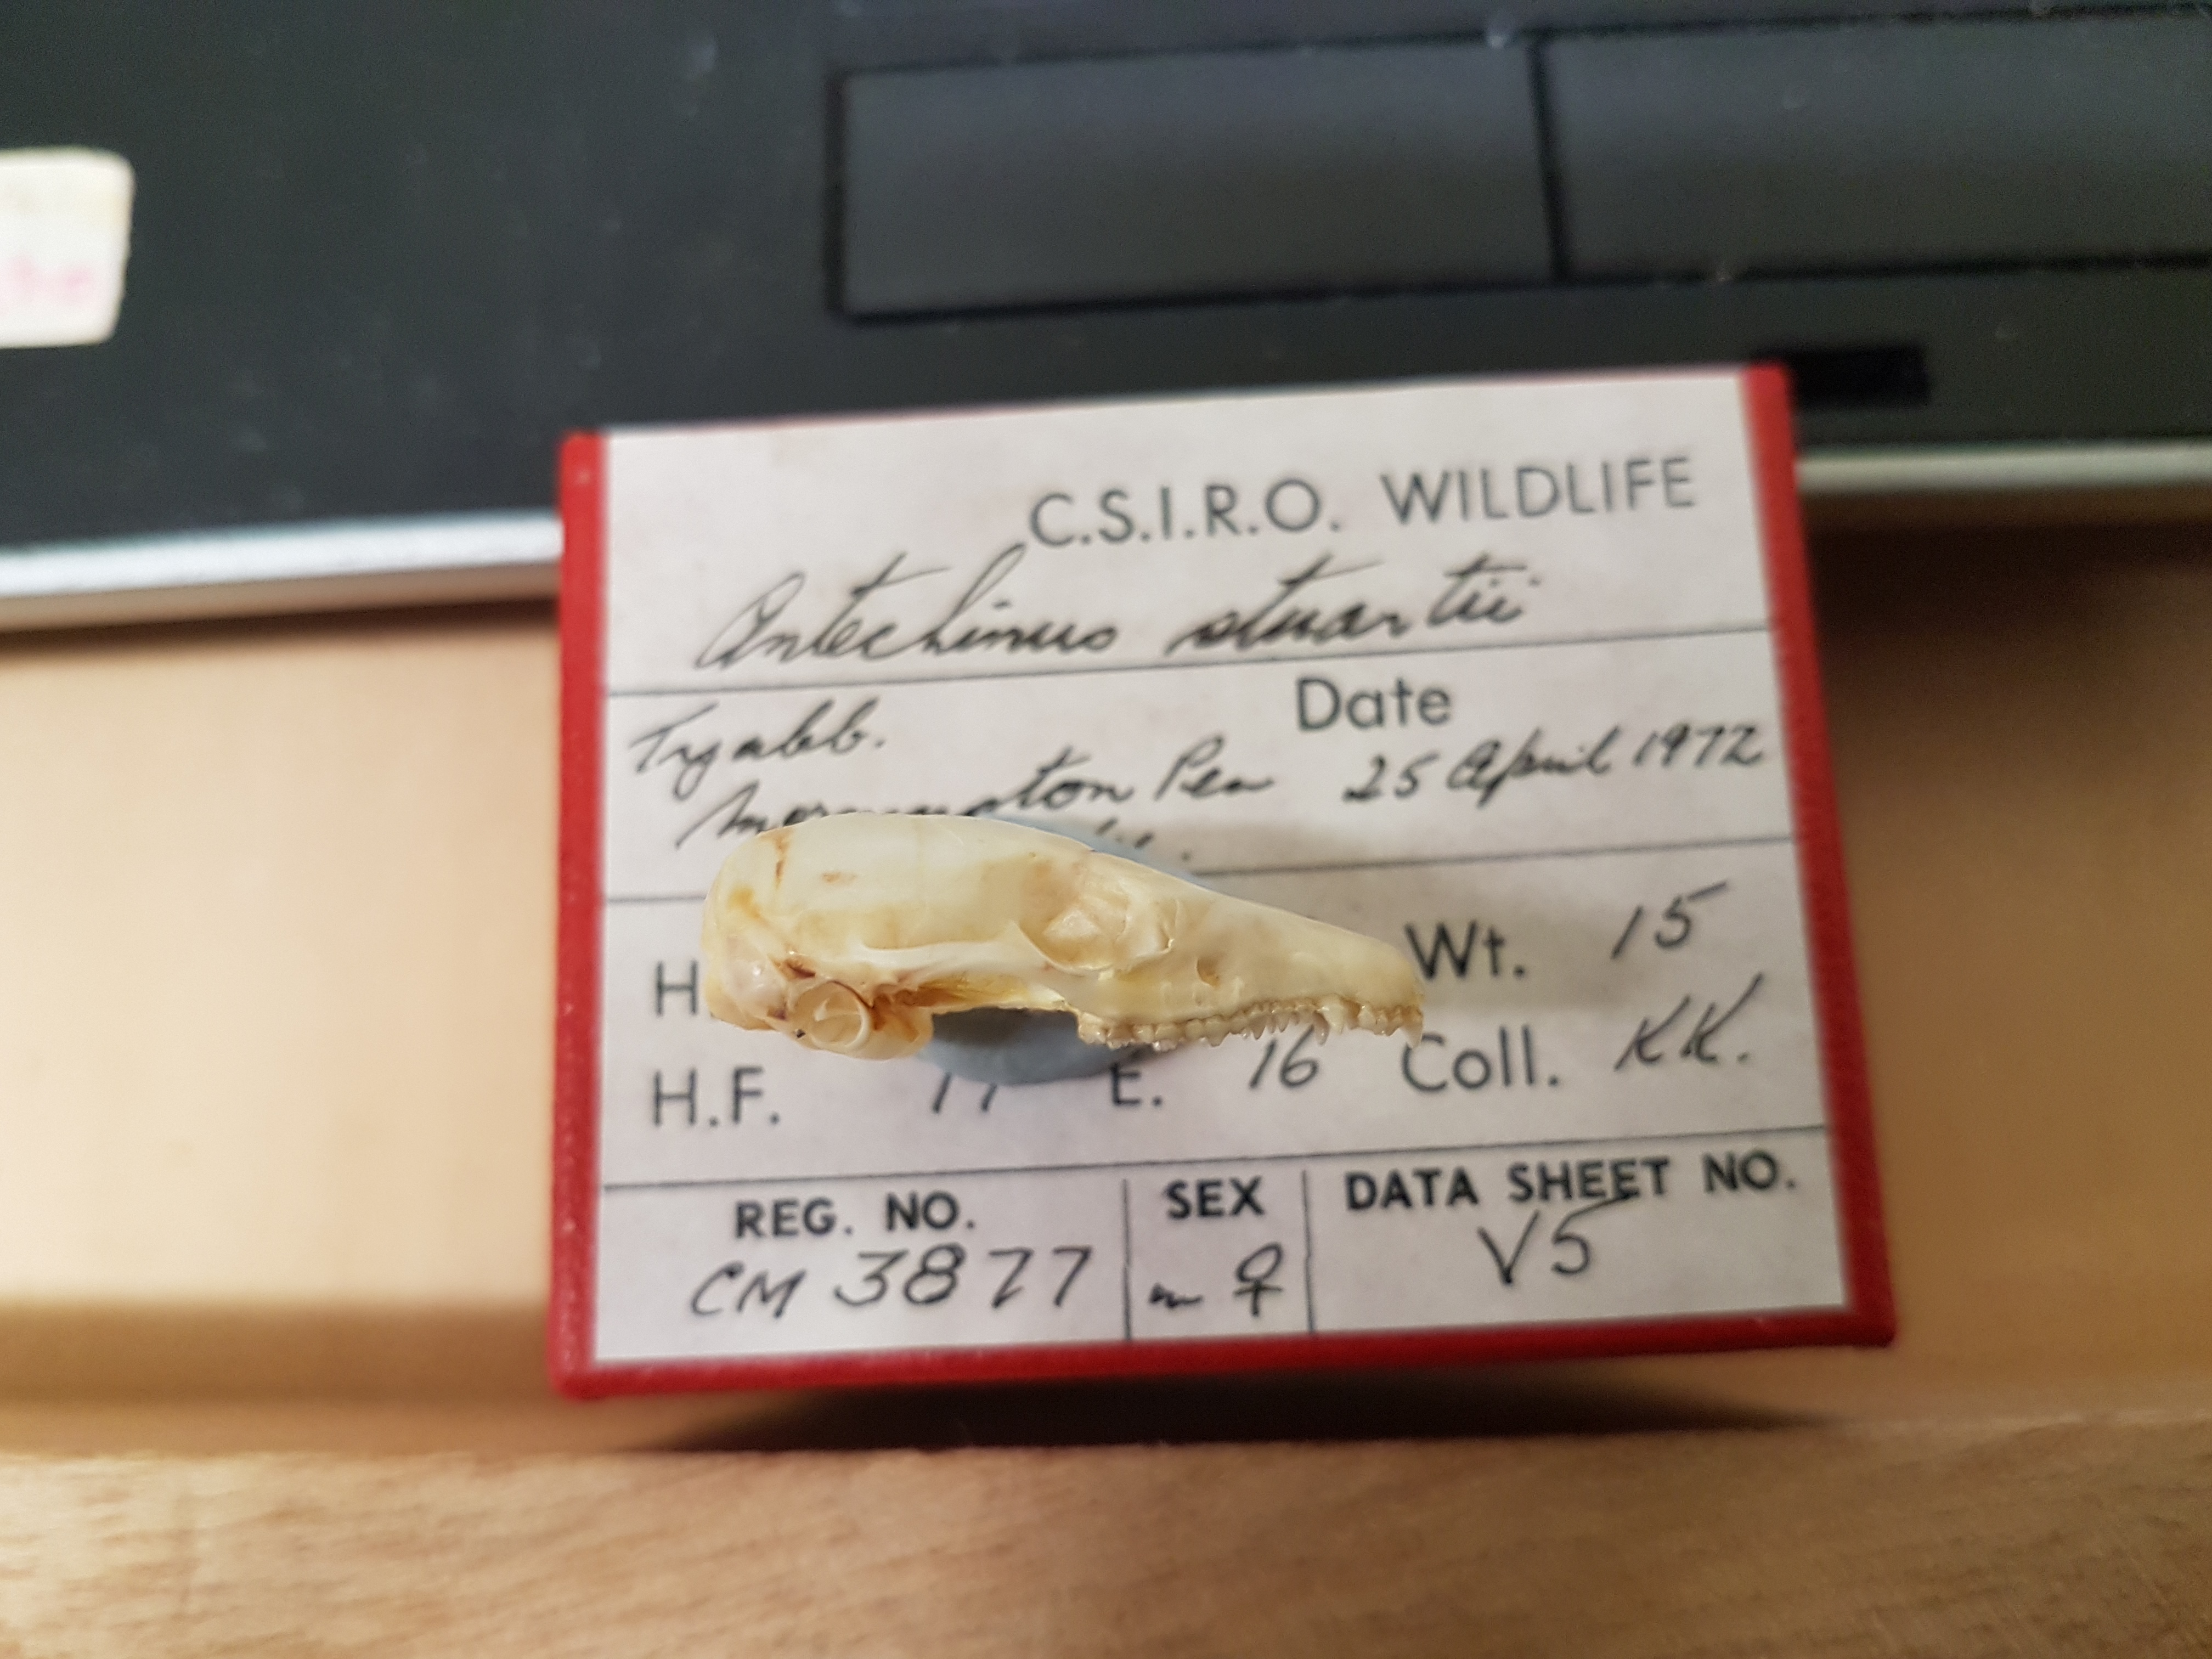 C.S.I.R.O. WILDLIFE
Antechinus stuartii
Tyabb. Date
ton Pen 25 April 1972
H Wt. 15
H.F. 17 E. 16 Coll. KK.
REG. NO. SEX DATA SHEET NO.
CM 3877 ♀ V5